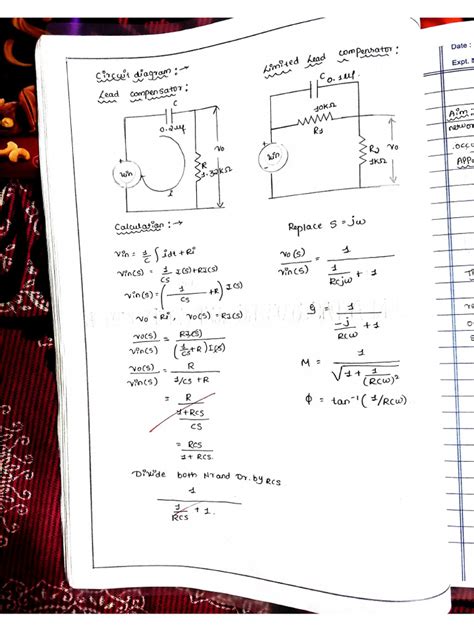 Circuit diagram : →
Lead compensator :
C
0.2μf
Vin
I
Vo
R
1.32KΩ
Limited Lead compensator :
C 0.1μf
10KΩ
R1
Vin
R2
1KΩ
Vo
Calculation : →
Vin = 1/C ∫ idt + Ri
Vin(s) = 1/CS I(s) + RI(s)
Vin(s) = (1/CS + R) I(s)
Vo = Ri, Vo(s) = RI(s)
Vo(s)/Vin(s) = RI(s)/(1/CS + R) I(s)
Vo(s)/Vin(s) = R/1/CS + R
= R/1+RCS/CS
= RCS/1 + RCS
Divide both Nr and Dr. by RCS
1/1/RCS + 1.
Replace S = jω
Vo(s)/Vin(s) = 1/1/RCjω + 1
1/-j/RCω + 1
M = 1/√1 + 1/(RCω)²
ϕ = tan⁻¹ (1/RCω)
Date :
Expt.
Aim :
networ
occu
App